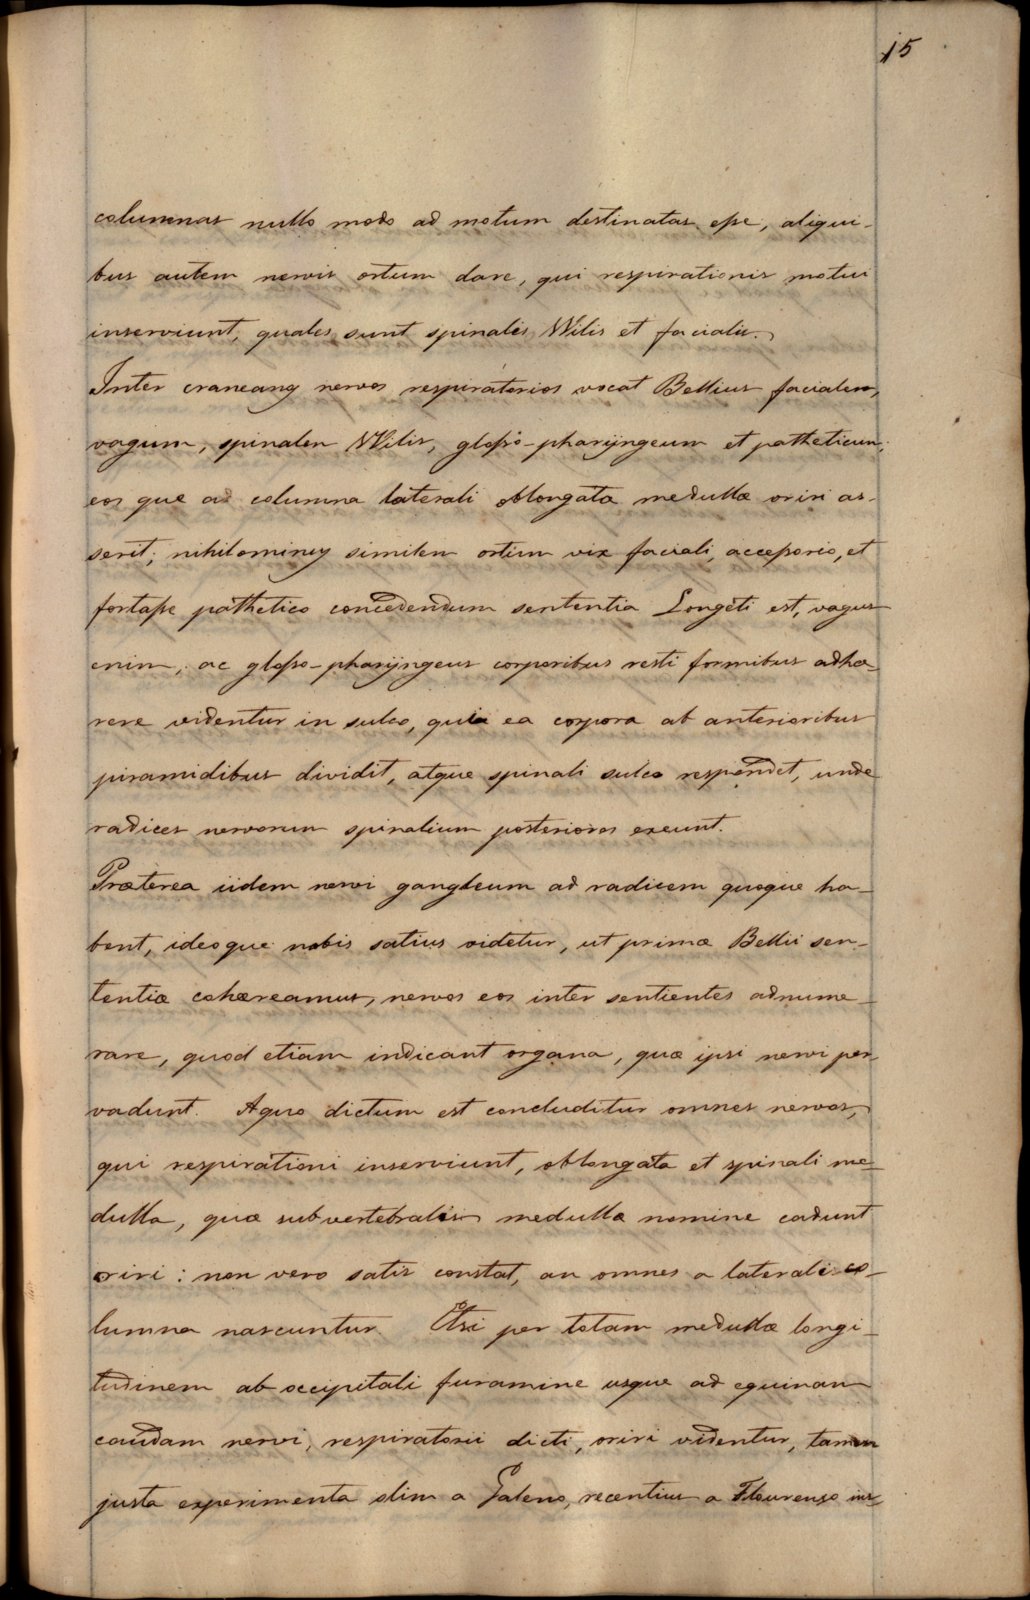 15
columnas nullo modo ad motum destinatas esse, aliqui-
bus autem nervis ortum dare, qui respirationis motui
inserviunt, quales sunt spinalis Wilis et facialis.
Inter craneanos nervos respiratorios vocat Bellius facialem,
vagum, spinalem Wilis, glosso-pharÿngeum et patheticum;
eos que a columna laterali oblongatæ medullæ oriri as-
serit; nihilominus similem ortum vix faciali, accessorio, et
fortasse pathetico concedendum sententia Longeti est, vagus
enim, ac glosso-pharÿngeus corporibus resti formibus adhæ-
rere videntur in sulco, quia ea corpora ab anterioribus
piramidibus dividit, atque spinali sulco respondet, unde
radices nervorum spinalium posteriores exeunt.
Præterea iidem nervi gangleum ad radicem quoque ha-
bent, ideoque nobis satius videtur, ut primæ Bellii sen-
tentiæ cohæreamus, nervos eos inter sentientes adnume-
rare, quod etiam indicant organa, quæ ipsi nervi per-
vadunt. A quo dictum est concluditur omnes nervos,
qui respirationi inserviunt, oblongata et spinali me-
dulla, quæ subvertebralis medullæ nomine cadunt
oriri: non vero satis constat, an omnes a laterali co-
lumna nascuntur. Etsi per totam medullæ longi-
tudinem ab occipitali furamine usque ad equinam
caudam nervi, respiratorii dicti, oriri videntur, tamen
justa experimenta olim a Galeno, recentius a Flourenso ins-